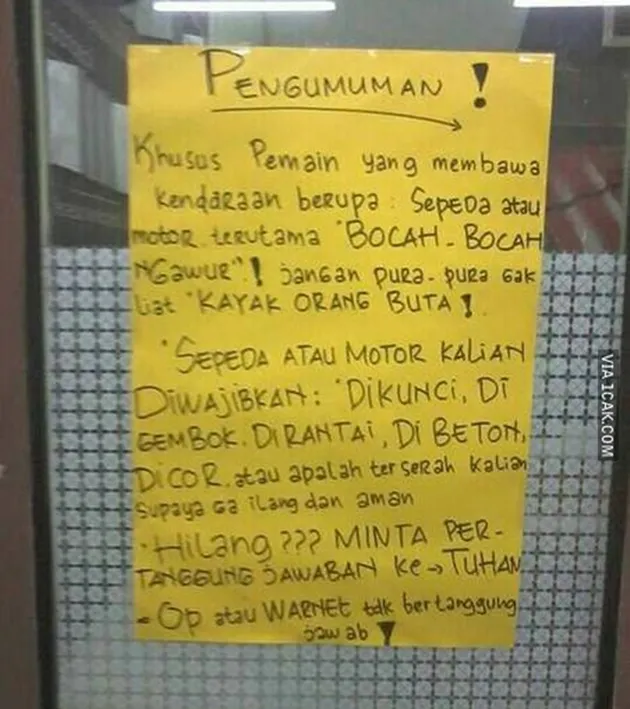 PENGUMUMAN !
Khusus Pemain yang membawa
kendaraan berupa : Sepeda atau
motor. terutama "BOCAH - BOCAH
NGAWUR" ! jangan pura - pura gak
liat "KAYAK ORANG BUTA !
"SEPEDA ATAU MOTOR KALIAN
DIWAJIBKAN : "DIKUNCI, DI
GEMBOK. DIRANTAI, DI BETON,
DICOR. atau apalah terserah kalian
supaya ga ilang dan aman
- Hilang ??? MINTA PER-
TANGGUNG JAWABAN Ke → TUHAN
- Op atau WARNET tdk bertanggung
jawab !
VIA 1CAK.COM